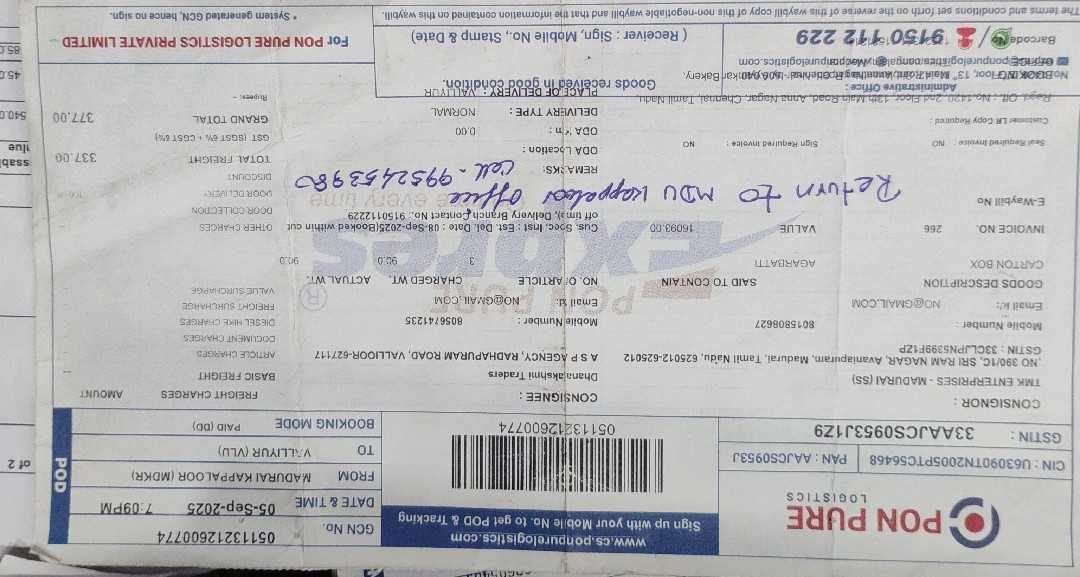 PON PURE
LOGISTICS
www.cs.ponpurelogistics.com
Sign up with your Mobile No. to get POD & Tracking
GCN No. 05113212600774
DATE & TIME 05-Sep-2025 7:09PM
FROM MADURAI KAPPALOOR (MDKR)
TO VALLIYUR (VLU)
BOOKING MODE PAID (DD)
POD
CIN : U63090TN2005PTC56468 PAN : AAJCS0953J
GSTIN : 33AAJCS0953J1Z9
05113212600774
CONSIGNOR :
TMK ENTERPRISES - MADURAI (SS)
NO. 390/1C, SRI RAM NAGAR, Avaniapuram, Madurai, Tamil Nadu, 625012-625012
GSTIN : 33CLJPN5399F1ZP
Mobile Number : 8015808627
Email id: NO@GMAIL.COM
CONSIGNEE :
Dhanalakshmi Traders
A S P S AGENCY, RADHAPURAM ROAD, VALLIOOR-627117
Mobile Number : 8056741235
Email id: NO@GMAIL.COM
FREIGHT CHARGES AMOUNT
BASIC FREIGHT
ARTICLE CHARGES
DOCUMENT CHARGES
DIESEL HIKE CHARGES
FREIGHT SURCHARGE
VALUE SURCHARGE
OTHER CHARGES
DOOR COLLECTION
DOOR DELIVERY
DISCOUNT
TOTAL FREIGHT 337.00
GST (SGST 6% + CGST 6%)
GRAND TOTAL 377.00
Rupees: -
GOODS DESCRIPTION SAID TO CONTAIN NO. OF ARTICLE CHARGED WT. ACTUAL WT.
CARTON BOX AGARBATTI 3 90.0 90.0
PON PURE
Expres
INVOICE NO. 266 VALUE 16093.00
Cus. Spec. Inst : Est. Del. Date : 08-Sep-2025(Booked within cut off time), Delivery Branch Contact No.: 9150112229
E-Waybill No
Return to MDU Kappaloor Office
Cell - 9952453980
REMARKS:
ODA Location :
Seal Required Invoice : NO Sign Required Invoice : NO
ODA Km : 0.00
Customer LR Copy Required :
DELIVERY TYPE : NORMAL
PLACE OF DELIVERY : VALLIYUR
Regd. Off. : No. 1420, 2nd Floor, 13th Main Road, Anna Nagar, Chennai, Tamil Nadu
Administrative Office :
BOOKING
OFFICE
Goods received in good condition.
( Receiver : Sign, Mobile No., Stamp & Date)
For PON PURE LOGISTICS PRIVATE LIMITED
* System generated GCN, hence no sign.
Barcode No
9150 112 229
The terms and conditions set forth on the reverse of this waybill copy of this non-negotiable waybill and that the information contained on this waybill.
of 2